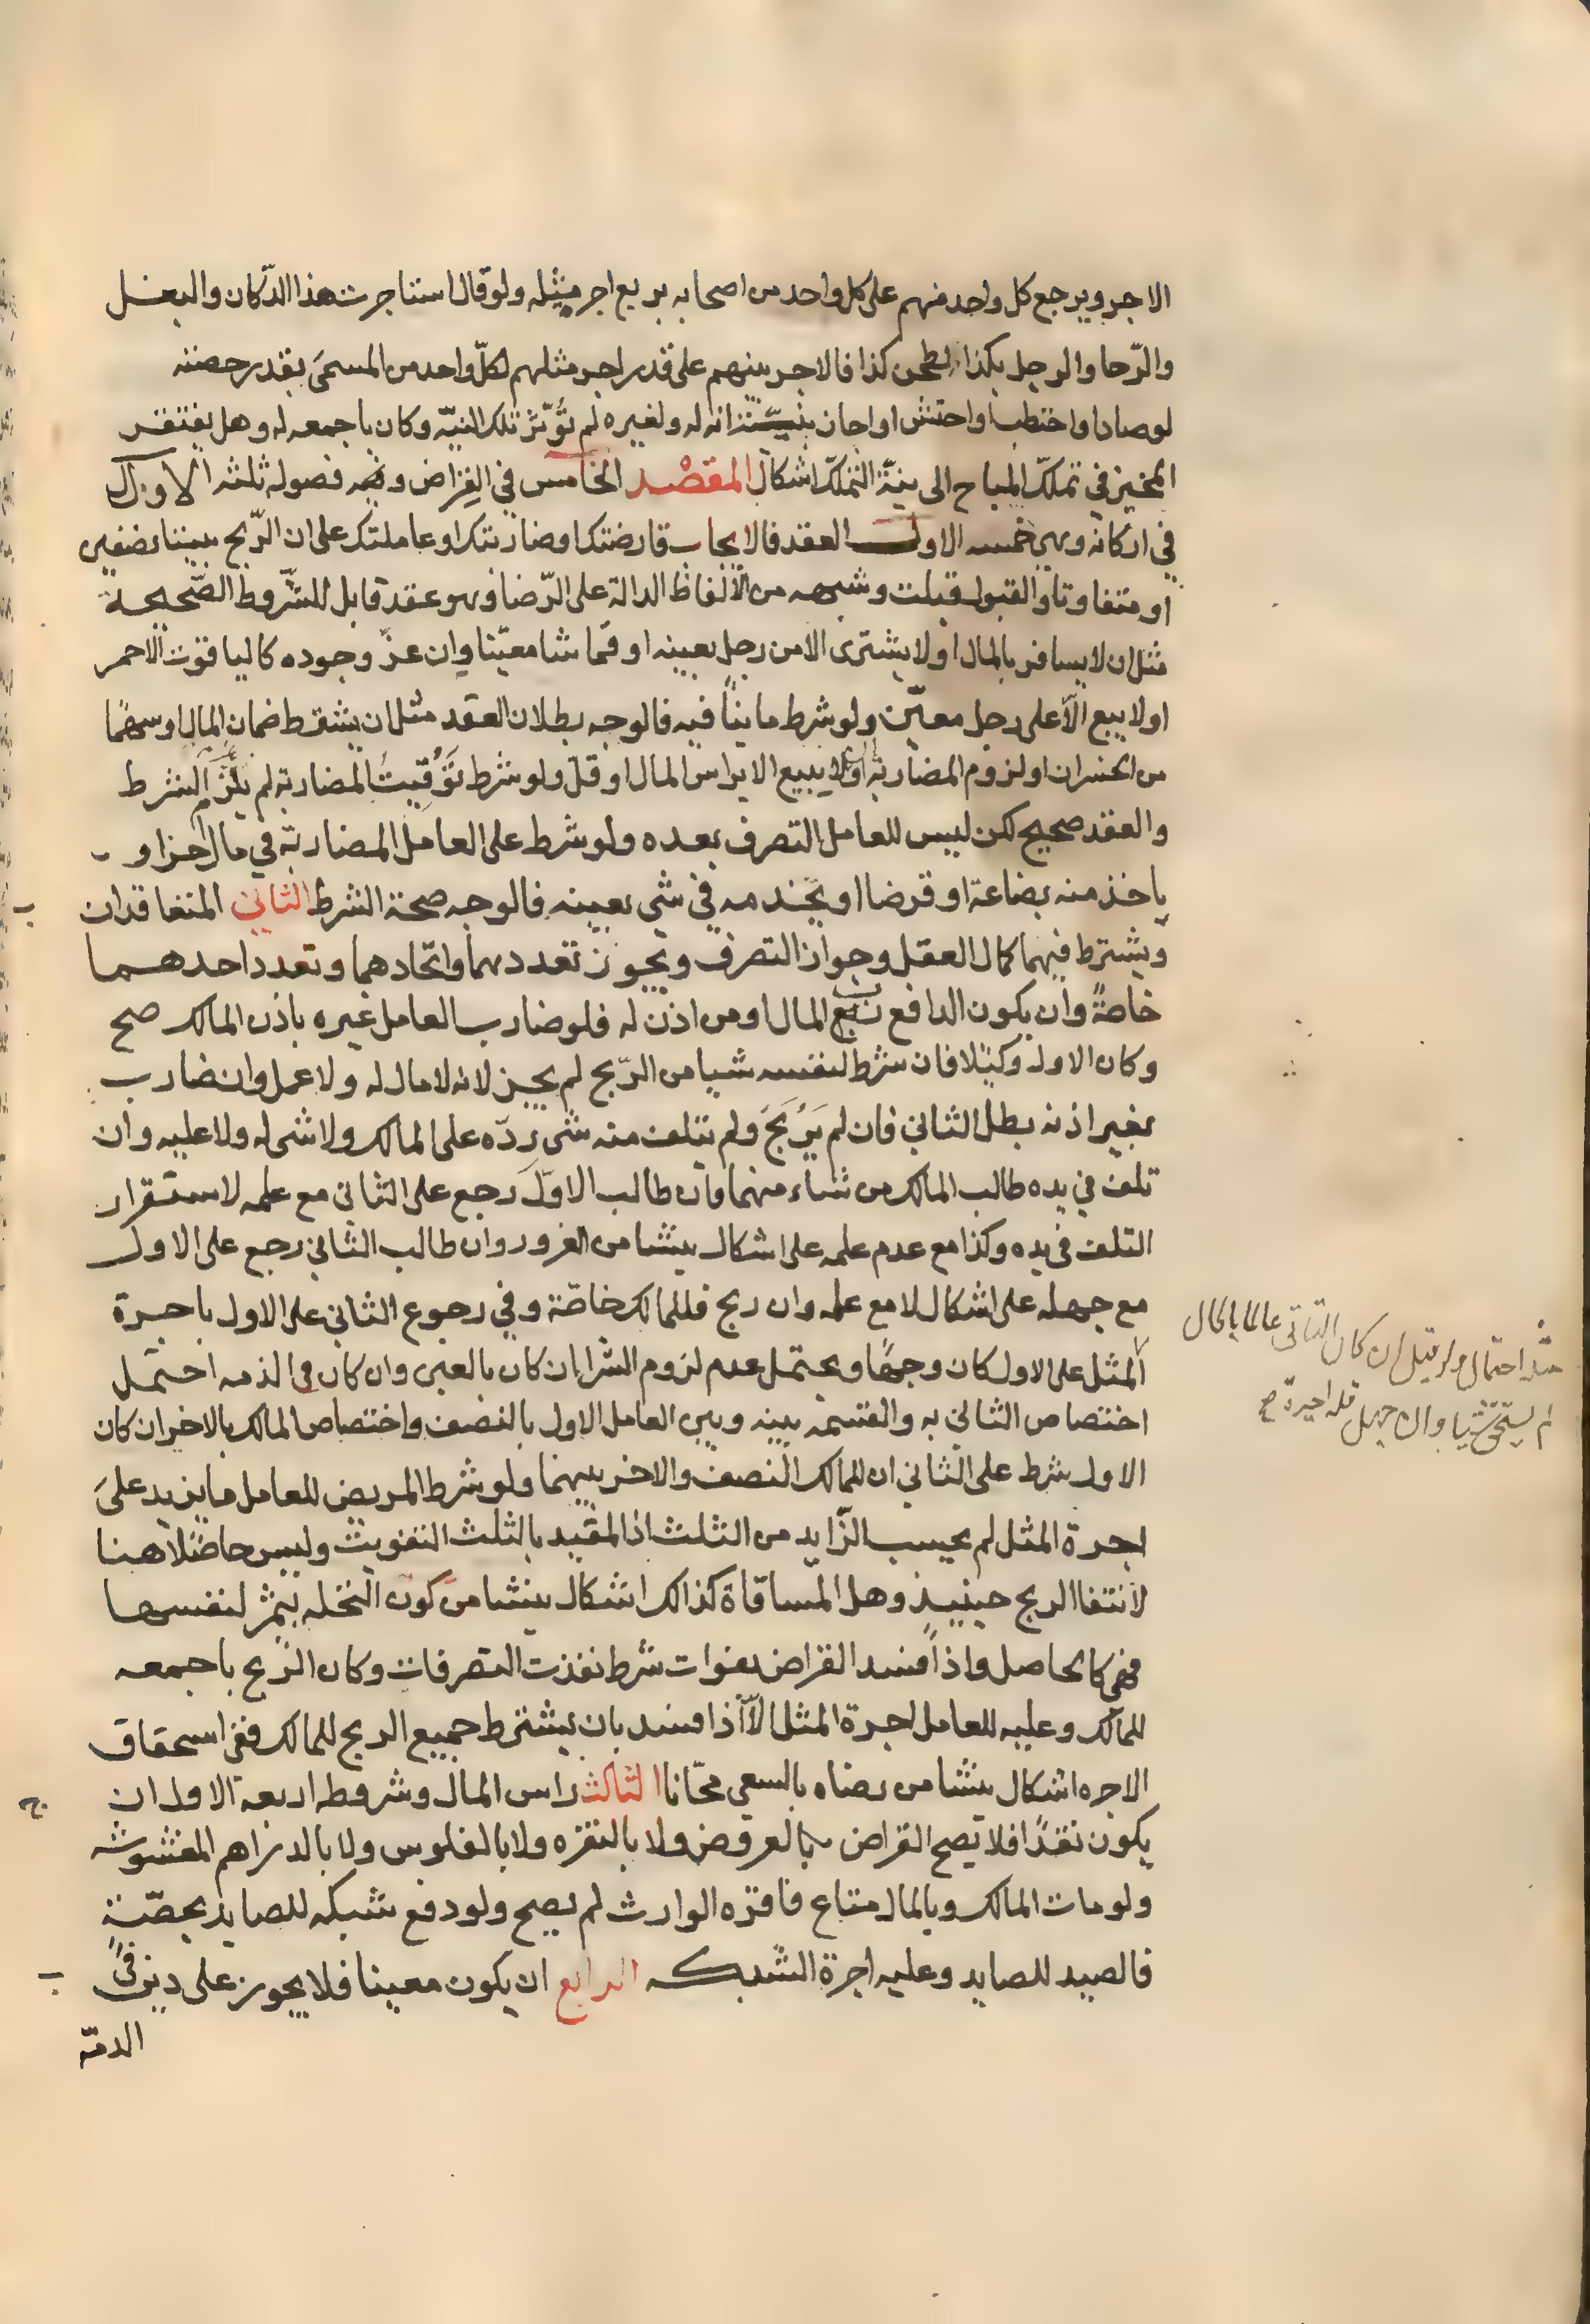 الاجر ويرجع كل واحد منهم على كل واحد من اصحابه بربع اجر مثله ولو قال استاجرت هذا الدّكان والبغل
والرّحا والرجل بكذا لطحن كذا فالاجر بينهم على قدر اجر مثلهم لكلّ واحد من المسمى بقدر حصته
لو صاد او احتطب او احتش او احاز بنيّة انه له ولغيره لم تُؤثّر تلك النيّة وكان باجمعه له وهل يفتقر
المخيز في تملّك المباح الى نيّة التملّك اشكال المقصد الخامس في القِراض وفيه فصول ثلثه الاول
في اركانه وهي خمسه الاول العقد فالايجاب قارضتك او ضاربتك او عاملتك على ان الرّبح بيننا نصفين
او متفاوتا والقبول قبلت وشبهه من الالفاظ الدالة على الرّضا وهو عقد قابل للشّروط الصّحيحة
مثل ان لا يسافر بالمال او لا يشترى الا من رجل بعينه او قماشا معيّنا وان عزّ وجوده كالياقوت الاحمر
او لا يبيع الّا على رجل معيّن ولو شرط ما ينافيه فالوجه بطلان العقد مثل ان يشترط ضمان المال او سهمًا
من الخسران او لزوم المضاربة او لا يبيع الا براس المال او قل ولو شرط تَوْقيتُ المضاربة لم يلزم الشرط
والعقد صحيح لكن ليس للعامل التصرف بعده ولو شرط على العامل المضاربة في مال اخر او
ياخذ منه بضاعة او قرضا او يخدمه في شي بعينه فالوجه صحة الشرط الثاني المتعاقدان
ويشترط فيهما كمال العقل وجواز التصرف ويجوز تعددهما واتّحادهما وتعدد احدهما
خاصةً وان يكون الدافع المال او من اذن له فلو ضارب العامل غيره باذن المالك صح
وكان الاول وكيلا فان شرط لنفسه شيا من الرّبح لم يجز لانه لا مال له ولا عمل وان ضارب
بغير اذنه بطل الثاني فان لم يَرْبَحَ ولم يتلف منه شي ردّه على المالك ولا شى له ولا عليه وان
تلف في يده طالب المالك من شاء منهما فان طالب الاوّل رجع على الثاني مع علمه لاستقرار
التلف في يده وكذا مع عدم علمه على اشكال ينشا من الغرور وان طالب الثاني رجع على الاول
مع جهله على اشكال لا مع علمه وان ربح فللمالك خاصّة وفي رجوع الثاني على الاول باجرة
المثل على الاول كان وجهًا ويحتمل عدم لزوم الشرا ان كان بالعين وان كان في الذمه احتمل
اختصاص الثاني به والقسمه بينه وبين العامل الاول بالنصف واختصاص المالك بالاخير ان كان
الاول شرط على الثاني ان للمالك النصف والاخر بينهما ولو شرط المريض للعامل ما يزيد على
اجرة المثل لم يحسب الزّايد من الثلث اذ المقيد بالثلث التفويت وليس حاصلًا هنا
لانتفا الربح حينيذٍ وهل المساقاة كذلك اشكال ينشا من كون النخله تثمر لنفسها
فهي كالحاصل واذا فسد القراض بفوات شرط نفذت التصرفات وكان الرّبح باجمعه
للمالك وعليه للعامل اجرة المثل الّا اذا فسد بان يشترط جميع الربح للمالك ففي استحقاق
الاجره اشكال ينشا من رضاه بالسعي مجّانا الثالث راس المال وشروطه اربعة الاول ان
يكون نقدًا فلا يصح القراض بالعروض ولا بالنقره ولا بالفلوس ولا بالدراهم المغشوشه
ولو مات المالك وبالمال متاع فاقره الوارث لم يصح ولو دفع شبكه للصايد بحصّة
فالصيد للصايد وعليه اجرة الشبكه الرابع ان يكون معينا فلا يجوز على دين في
الذمّة
مثله احتمال ولو قيل ان كان الثاني عالما بالحال
لم يستحق شيا وان جهل فله اجرة صح